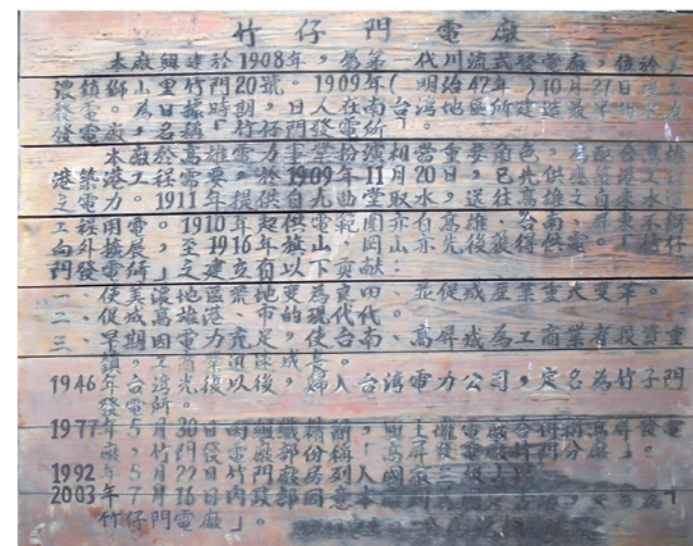 竹仔門電廠
本廠興建於1908年,屬第一代川流式發電廠,位於美
濃鎮獅山里竹門20號。1909年(明治42年)10月27日
發電。為日據時期,日人在南台灣地區所建造最早的水力
發電廠,名稱「竹仔門發電所」。
本廠於高雄電力事業扮演相當重要角色,為配合高雄
港築港工程需要,於1909年11月20日,已先供應築港工程
之電力。1911年提供自九曲堂取水,送往高雄之自來水
工程用電。1910年起供電範圍亦自高雄、台南、屏東不斷
向外擴展,至1916年旗山、岡山亦先後獲得供電。「竹仔
門發電所」之建立有以下貢献:
一、使美濃地區荒地變為良田、並促成產業重大變革。
二、促成高雄港、市的現代代。
三、早期因電力充足,使台南、高屏成為工商業者投資重
鎮,工商業迅速成長。
1946年台灣光復以後,歸入台灣電力公司,定名為竹子門
發電所。
1977年5月30日因組織精簡,與 電廠合併稱高屏發電
廠,竹門發電廠部份稱「高屏發電廠竹門分廠」。
1992年5月22日竹門廠房列入國家三級古蹟
2003年7月16日內政部同意本
竹仔門電廠」。